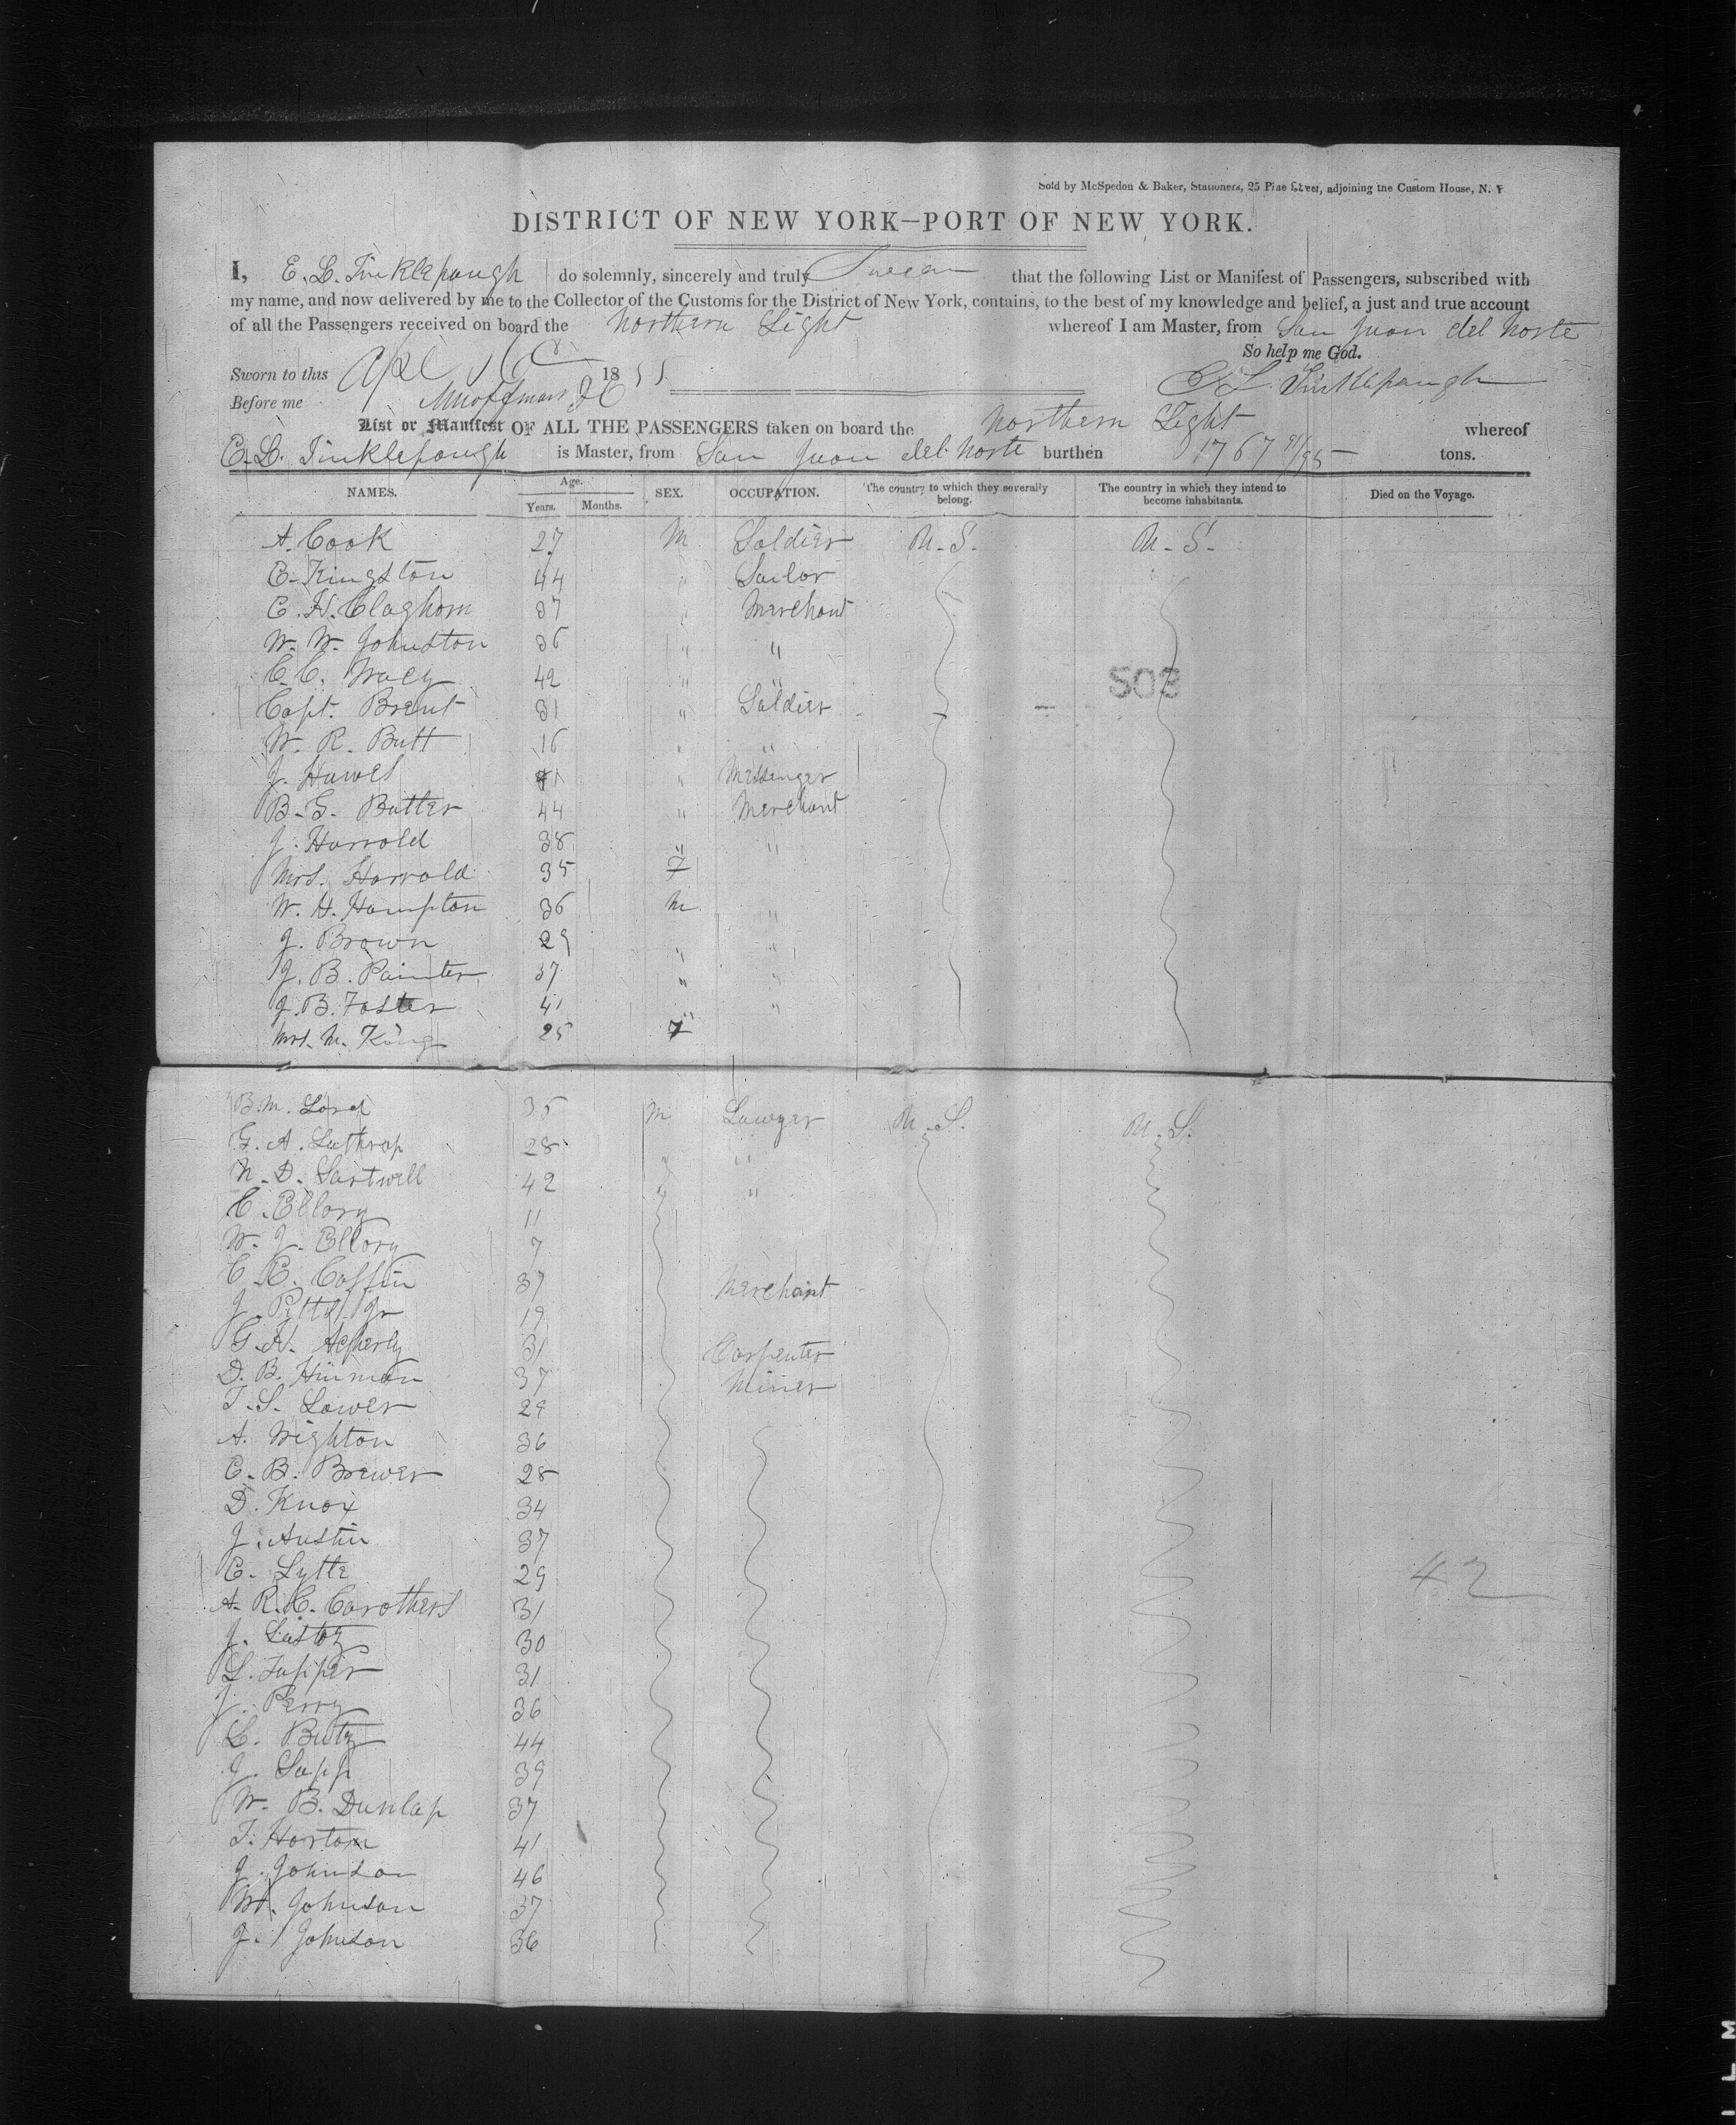 Sold by McSpedon & Baker, Stationers, 25 Pine Street, adjoining the Custom House, N. Y
DISTRICT OF NEW YORK—PORT OF NEW YORK.
I, E. L. Tinklepaugh do solemnly, sincerely and truly Swear that the following List or Manifest of Passengers, subscribed with
my name, and now delivered by me to the Collector of the Customs for the District of New York, contains, to the best of my knowledge and belief, a just and true account
of all the Passengers received on board the Northern Light whereof I am Master, from San Juan del Norte
So help me God.
Sworn to this Apl 16 1855
E L Tinklepaugh
Before me
List or Manifest OF ALL THE PASSENGERS taken on board the Northern Light whereof
E. L. Tinklepaugh is Master, from San Juan del Norte burthen 1767 91/95 tons.
NAMES. Age. Years. Months. SEX. OCCUPATION. The country to which they severally belong. The country in which they intend to become inhabitants. Died on the Voyage.
A. Cook 27 M Soldier U.S. U.S.
C. Kingston 44 " Sailor
C. H. Claghorn 37 " Merchant
W. W. Johnston 36 " "
C. C. 42 " "
Capt. Brent 31 " Soldier
W. R. Butt 16 " "
J. Hawes 41 " Messenger
B. G. Butler 44 " Merchant
J. Harrold 38 " "
Mrs. Harrold 35 F
W. H. Hampton 36 M "
J. Brown 29 " "
J. B. Painter 37 " "
J. B. Foster 41 " "
Mrs. M. King 25 F
503
B. M. Lord 35 M Lawyer U.S. U.S.
G. A. Lathrop 28 " "
N. D. Sartwell 42 " "
C. Ellory 11
W. J. Ellory 7
C. C. Coffin 37 Merchant
J. Pettit Jr 19
G. H. Acherly 31 Carpenter
D. B. Hinman 37 Miner
T. S. Lower 29
A. Wighton 36
C. B. Brewer 28
D. Knox 34
J. Austin 37
C. Lytte 29
A. R. C. Carothers 31
J. 30
L. Tupper 31
J. Perry 36
L. Butz 44
J. Sapp 39
W. B. Dunlap 37
T. Horton 41
J. Johnson 46
W. Johnson 37
J. Johnson 36
42